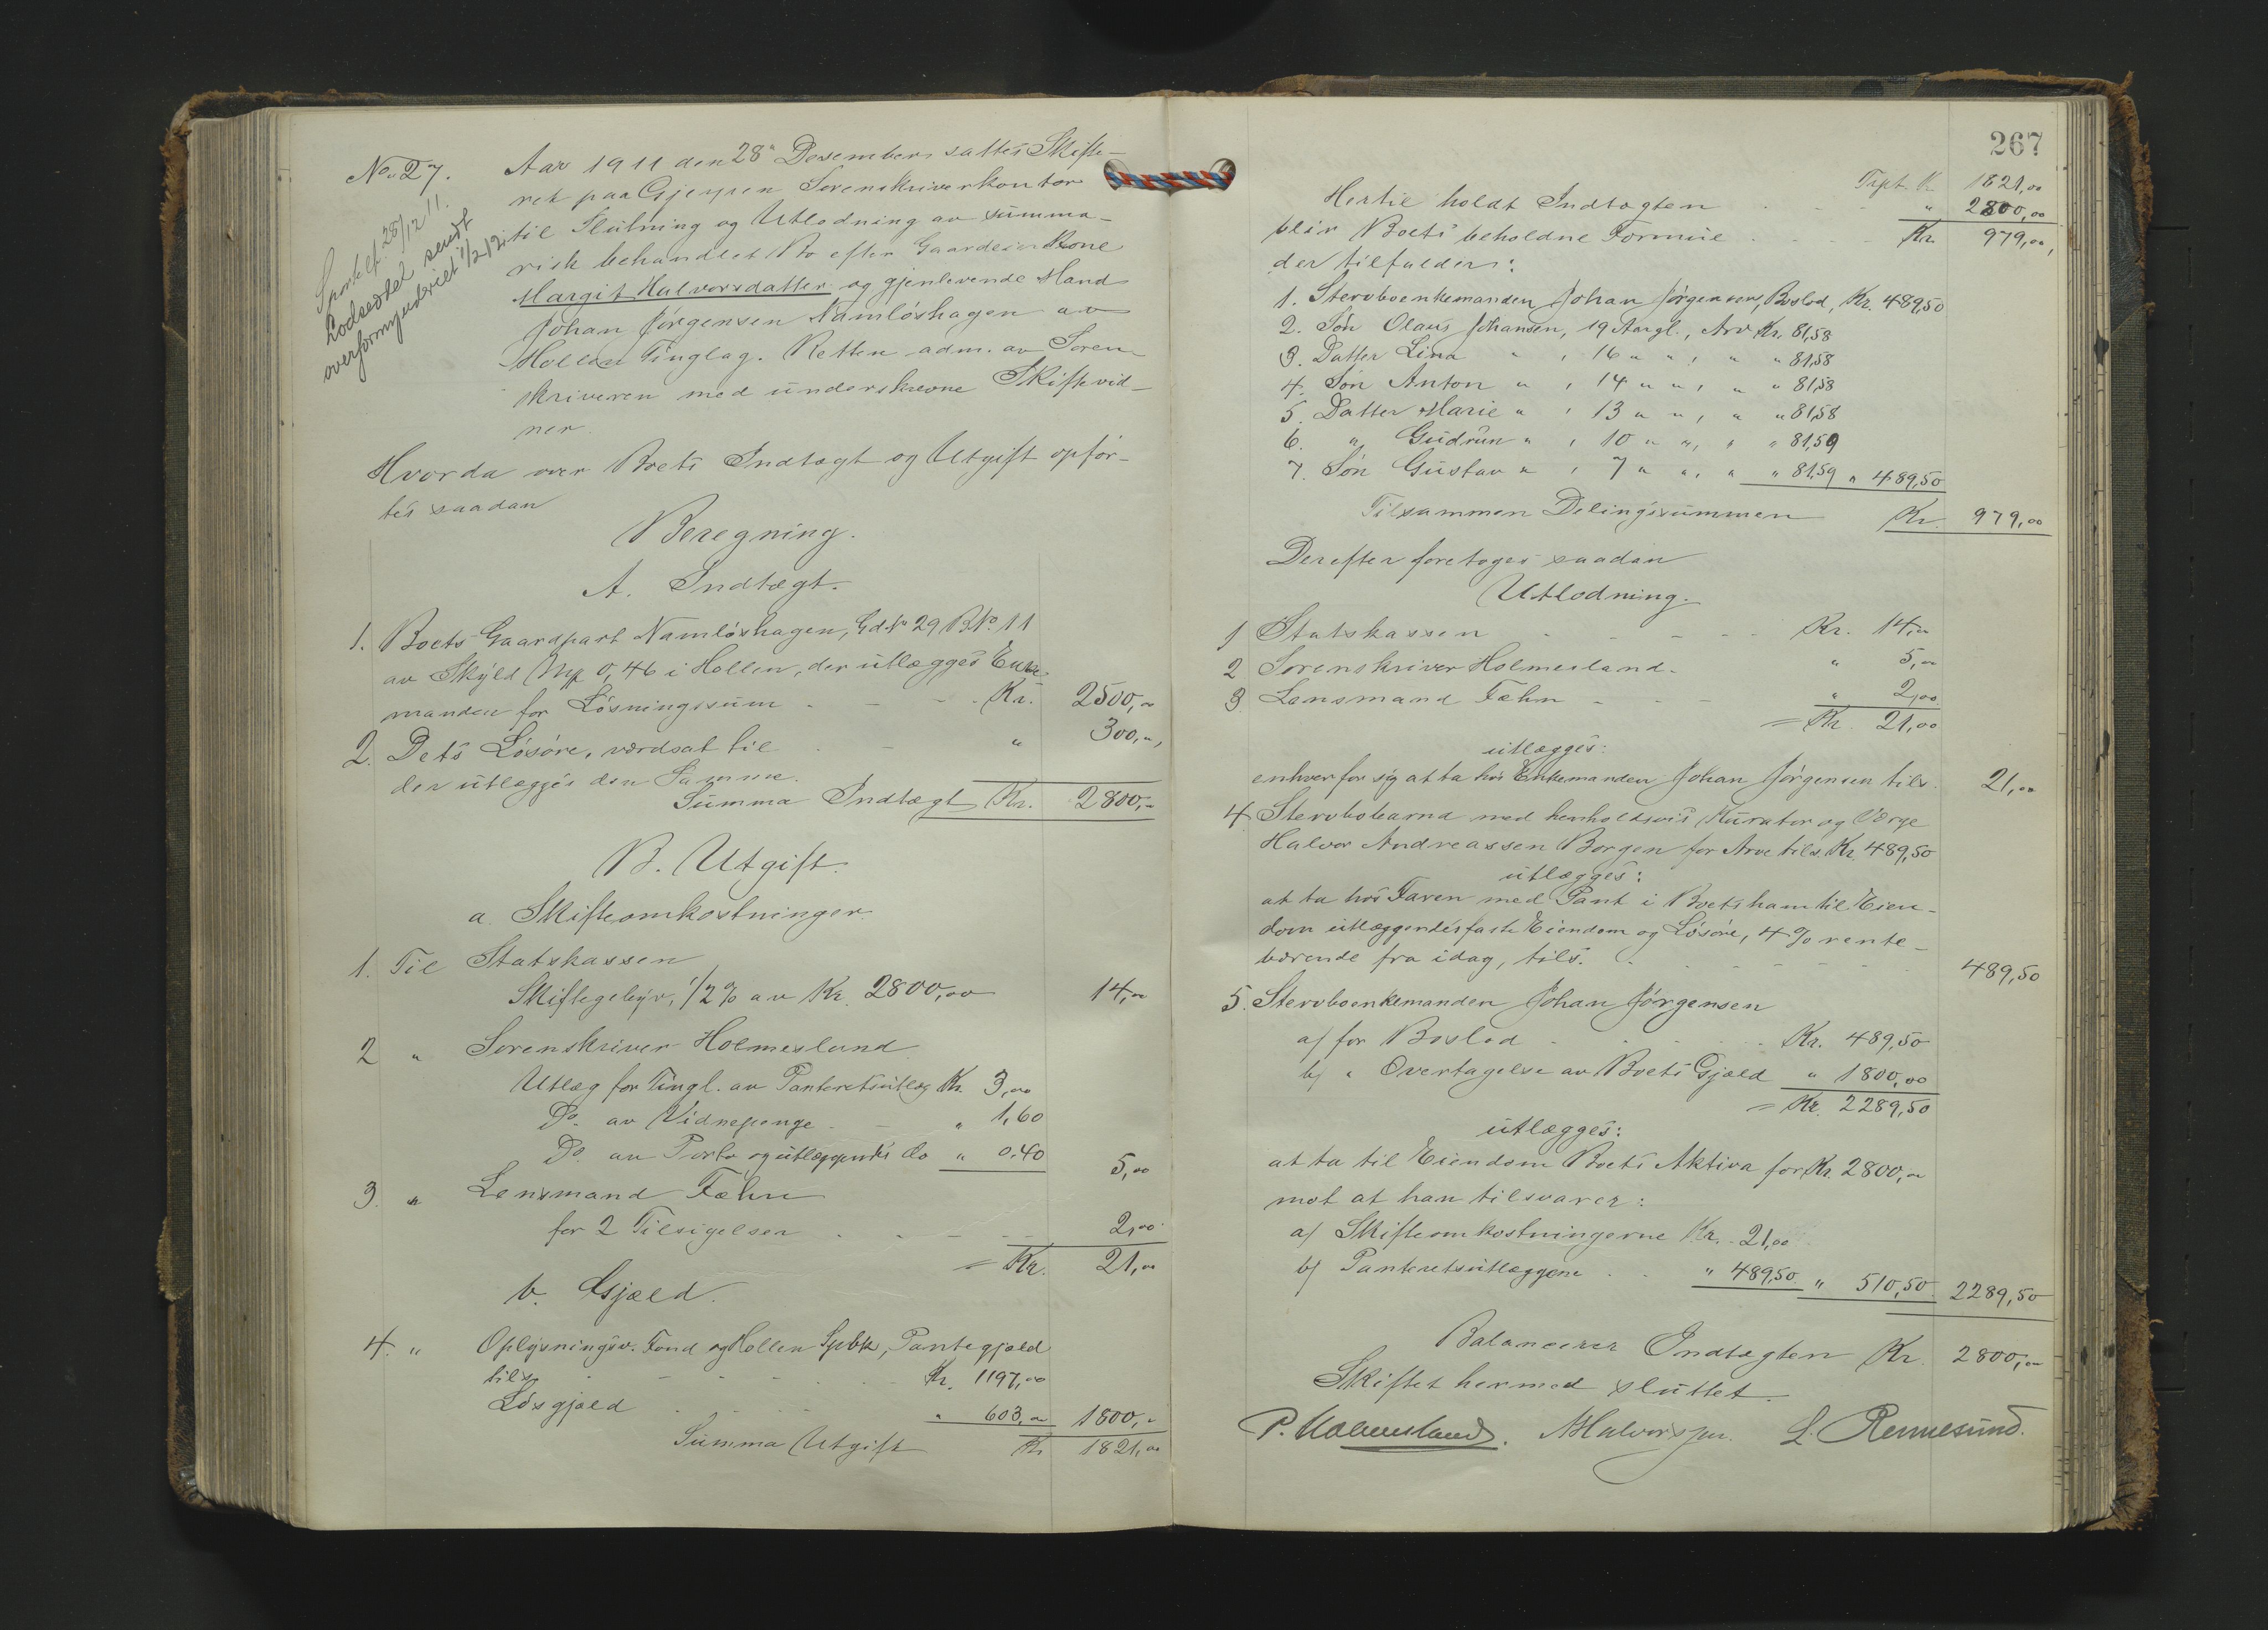 No. 27.
Sportelf. 28/12 11.
Lodseddel sendt
overformynderiet 1/2 12.
Aar 1911 den 28. Desember sattes Skifte-
ret paa Gjerpen Sorenskriverkontor
til Slutning og Utlodning av summa-
risk behandlet Bo efter Gaardeier Kone
Margit Halvorsdatter og gjenlevende Mand
Johan Jørgensen Namløshagen av
Hollen Tinglag. Retten adm. av Soren-
skriveren med underskrevne Skiftevid-
ner.
Hvorda over Boets Indtægt og Utgift opfør-
tes saadan
Beregning.
A. Indtægt.
1. Boets Gaardpart Namløshagen, Gd No 29 B.No. 11
av Skyld Mk 0,46 i Hollen, der utlægges Enke-
manden for Løsningssum - - - Kr. 2500,00
2. Dets Løsøre, værdsat til - - " 300,00,
der utlægges den Samme.
Summa Indtægt Kr. 2800,00
B. Utgift.
a. Skifteomkostninger.
1. Til Statskassen
Skiftegebyr, 1/2 % av Kr. 2800,00 14,00
2 " Sorenskriver Holmesland
Utlæg for Tingl. av Panteretsutlæg Kr. 3,00
Do. av Vidnepenge - - " 1,60
Do. av Porto og utlæggendes do " 0.40 5,00
3. " Lensmand Fæhn
for 2 Tilsigelser - - - - 2,00
= Kr. 21,00
b. Gjæld.
4. " Oplysningsv. Fond og Hollen Spbk, Pantegjæld
tils. - - - - - Kr. 1197,00
Løsgjæld - - - - " 603,00 1800,00
Summa Utgift Kr. 1821,00
267
Trpt. Kr. 1821,00
Hertil holdt Indtægten - - - " 2800,00
blir Boets beholdne Formue - - - - Kr. 979,00,
der tilfalder:
1. Stervboenkemanden Johan Jørgensens, Boslod, Kr. 489,50
2. Søn Olaus Johansen, 19 Aargl., Arv Kr. 81,58
3. Datter Lina " , 16 " " , " " 81,58
4. Søn Anton " , 14 " " , " " 81,58
5. Datter Marie " , 13 " " , " " 81,58
6. " Gudrun " , 10 " " , " " 81,59
7. Søn Gustav " , 7 " " , " " 81,59 " 489,50
Tilsammen Delingssummen Kr. 979,00
Derefter foretoges saadan
Utlodning.
1 Statskassen - - - - Kr. 14,00
2 Sorenskriver Holmesland - " 5,00
3 Lensmand Fæhn - - - " 2,00
= Kr. 21,00
utlægges:
enhver for sig at ta hos Enkemanden Johan Jørgensen tils. 21,00
4 Stervbobarna med henholdsvis Kurator og Værge
Halvor Andreassen Borgen for Arv tils. Kr. 489,50
utlægges:
at ta hos Faren med Pant i Boets ham til Eien-
dom utlæggendes faste Eiendom og Løsøre, 4 % rente-
bærende fra idag, tils. - - - - - - 489,50
5. Stervboenkemanden Johan Jørgensen
a/ for Boslod - - - - Kr. 489,50
b/ " Overtagelse av Boets Gjæld " 1800,00
= Kr. 2289,50
utlægges:
at ta til Eiendom Boets Aktiva for Kr. 2800,00
mot at han tilsvarer:
a/ Skifteomkostningerne Kr. 21,00
b/ Panteretsutlæggene - - " 489,50 " 510,50 2289,50
Balancerer Indtægten Kr. 2800,00
Skiftet hermed sluttet.
P. Holmesland. L.